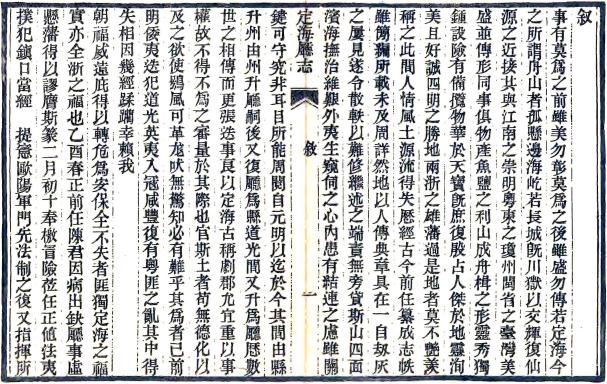 叙
事有莫爲之前雖美勿彰莫爲之後雖盛勿傳若定海今
之所謂舟山者孤懸邊海屹若長城旣川嶽以交輝復仙
源之近接其與江南之崇明粤東之瓊州閩省之臺灣美
盛並傳形同事俱物產魚鹽之利山成舟楫之形靈秀獨
鍾設險有備攬物華於天寶旣庶復殷占人傑於地靈洵
美且好誠四明之勝地兩浙之雄藩過是地者莫不艷羨
稱之此間人情風土源流得失歷經古今前任纂成志帙
雖簡獮所載未及周詳然地以人傳典章具在一自刼灰
之屢見遂令散軼以難修繼述之端責無旁貸斯山四面
濱海撫治維艱外夷生窺伺之心內患有結連之慮雖關
定海廳志　叙　一
鍵可守究非耳目所能周閱自元明以迄於今其間由縣
升州由州升廳嗣後又復廳爲縣道光間又升爲廳歷數
世之相傳而更張迭事長以定海古稱劇郡尤宜重以事
權故不得不爲之審量於其際也官斯土者苟無德化以
及之欲使鴞風可革厖吠無驚知必有難乎其爲者已前
明倭夷迭犯道光英夷入冦咸豐復有粤匪之亂其中得
失相因幾經蹂躪幸賴我
朝福威遠庇得以轉危爲安保全不失者匪獨定海之福
實亦全浙之福也乙酉春正前任陳君因病出缺廳事虛
懸藩得以謬膺斯篆二月初十奉檄冒險莅任正値法夷
撲犯鎮口當經　提憲歐陽軍門先法制之復又指揮所